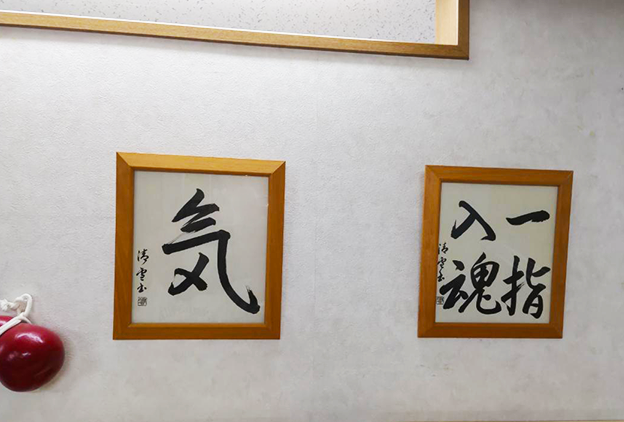 気
清雲書
一指
入魂
清雲書